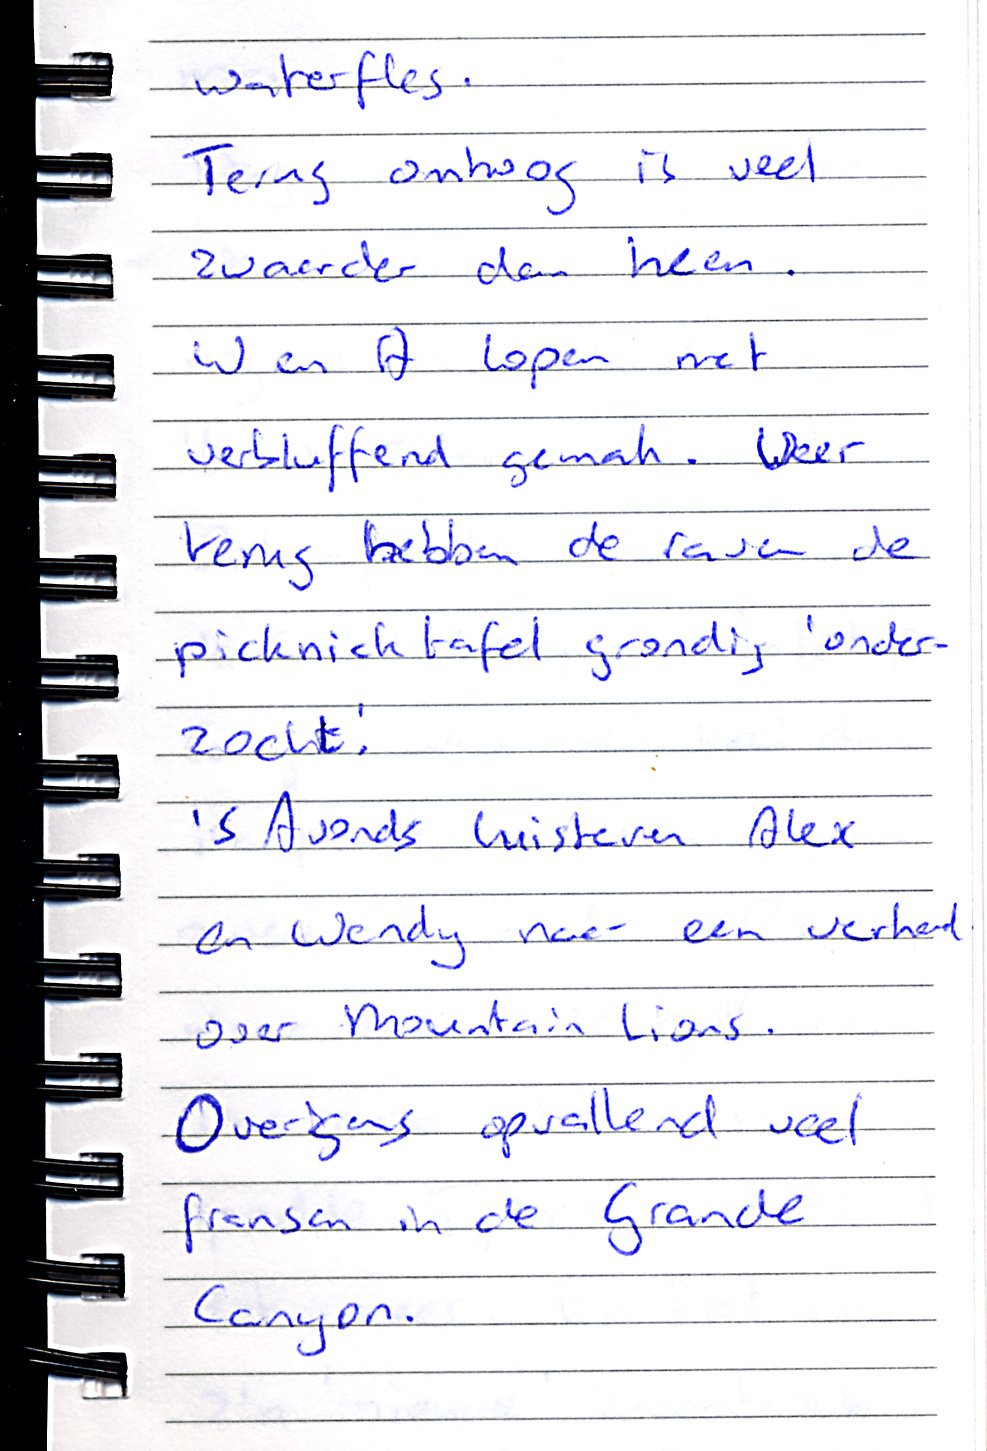 waterfles.
Terug omhoog is veel
zwaarder dan heen.
W en A lopen met
verbluffend gemak. Weer
terug hebben de raven de
picknick tafel grondig 'onder-
zocht!'
's Avonds luisteren Alex
en Wendy naar een verhaal
over Mountain Lions.
Overigens opvallend veel
fransen in de Grande
Canyon.